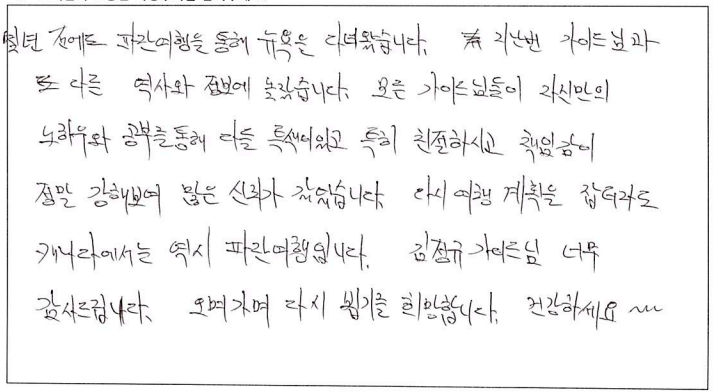 몇년 전에도 파란여행을 통해 뉴욕을 다녀왔습니다. 지난번 가이드님과
또 다른 역사와 정보에 놀랐습니다. 모든 가이드님들이 자신만의
노하우와 공부를 통해 다들 특색이있고 특히 친절하시고 책임감이
정말 강해보여 많은 신뢰가 갔었습니다. 다시 여행 계획을 잡더라도
캐나다에서는 역시 파란여행입니다. 김정규 가이드님 너무
감사드립니다. 오며가며 다시 뵙기를 희망합니다. 건강하세요 ~~